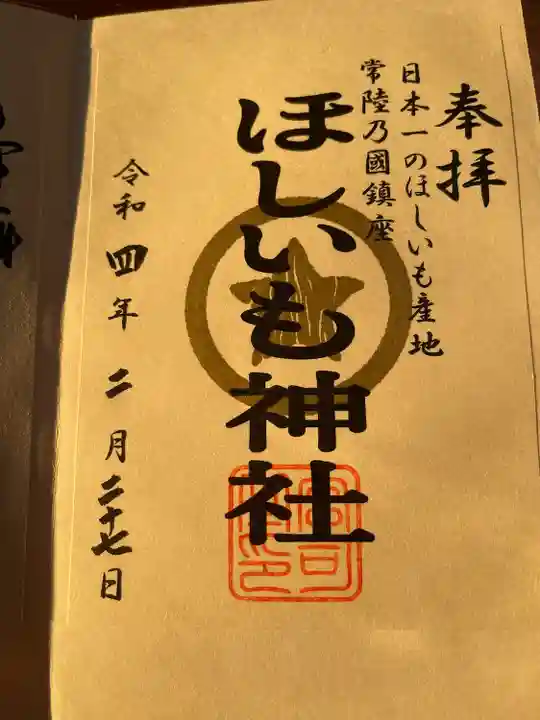 奉拝
日本一のほしいも産地
常陸乃國鎮座
ほしいも神社
令和四年二月二十七日